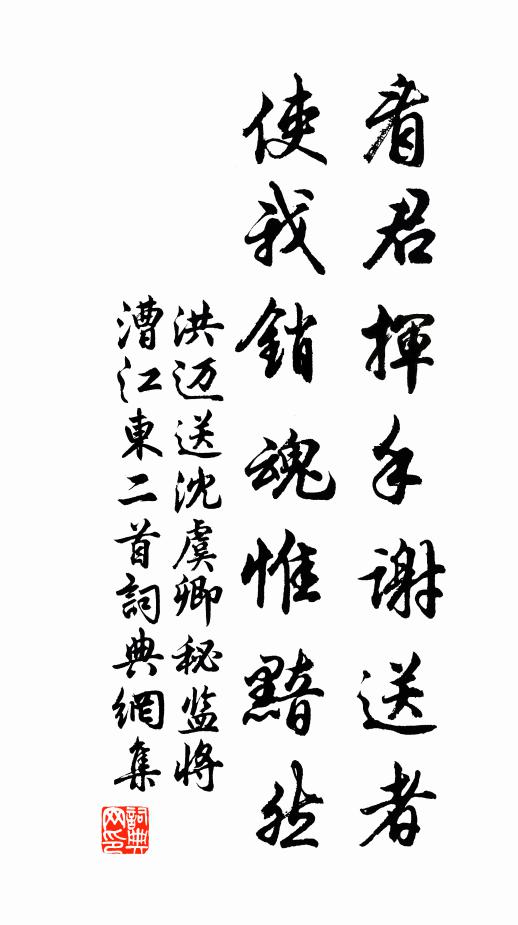 看君揮手謝送者
使我銷魂惟黯然
洪迈送沈虞卿秘监将
漕江東二首詞典網集
詞典
网印